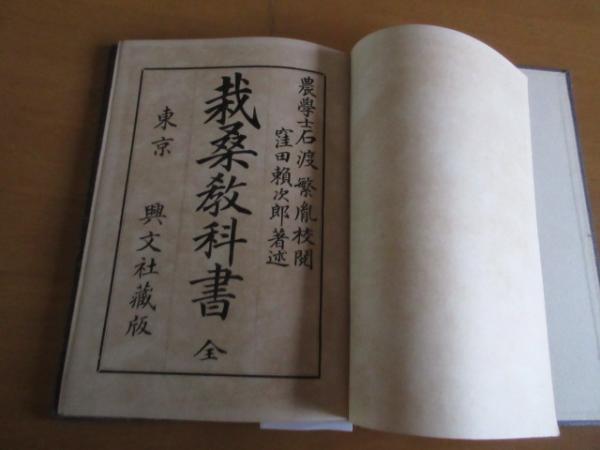 農學士石渡繁胤校閲
窪田賴次郎著述
栽桑教科書 全
東京 興文社藏版